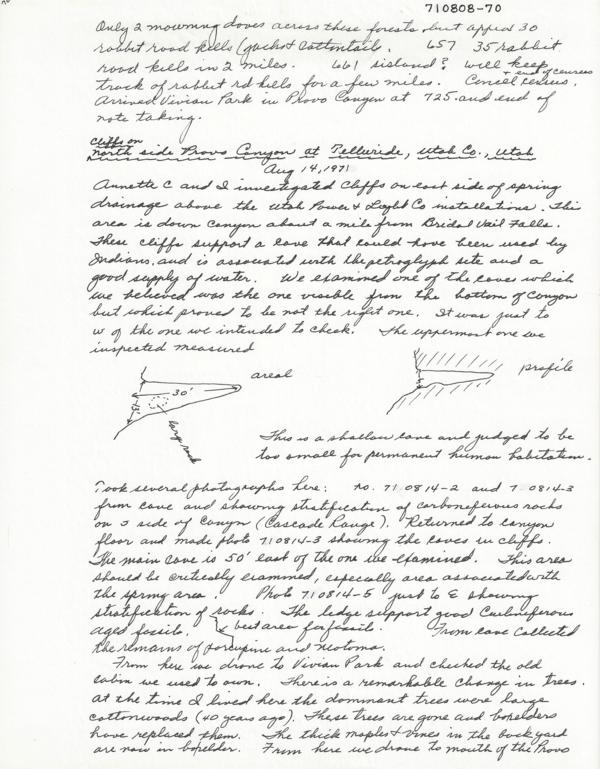 710808-70
Only 2 mourning doves across these forests but approx 30
rabbit road kills (jacks & cottontails. 657 35 rabbit
road kills in 2 miles. 661 sisland? will keep
track of rabbit rd kills for a few miles. Cancel census.
+ end of census
Arrived Vivian Park in Provo Canyon at 725. and end of
note taking.
Cliffs on
North side Provo Canyon at Telluride, Utah Co., Utah
Aug 14, 1971
Annette C and I investigated cliffs on east side of spring
drainage above the Utah Power & Light Co installations. This
area is down canyon about a mile from Bridal Vail Falls.
These cliffs support a cave that could have been used by
Indians, and is associated with the petroglyph site and a
good supply of water. We examined one of the caves which
we believed was the one visible from the bottom of canyon
but which proved to be not the right one. It was just to
w of the one we intended to check. The uppermost one we
inspected measured
areal
profile
30'
13'
large rock
This is a shallow cave and judged to be
too small for permanent human habitation.
Took several photographs here: no. 710814-2 and 7 0814-3
from cave and showing stratification of carboniferous rocks
on S side of Canyon (Cascade Range). Returned to canyon
floor and made photo 710814-3 showing the caves in cliffs.
The main cave is 50' east of the one we examined. This area
should be critically examined, especially area associated with
the spring area. Photo 710814-5 just to E showing
stratification of rocks. The ledge support good Carboniferous
aged fossils. best area for fossils. From cave collected
the remains of porcupine and neotoma.
From here we drove to Vivian Park and checked the old
cabin we used to own. There is a remarkable change in trees.
At the time I lived here the dominant trees were large
cottonwoods (40 years ago). These trees are gone and boxelders
have replaced them. The thick maples & vines in the back yard
are now in boxelder. From here we drove to mouth of the Provo